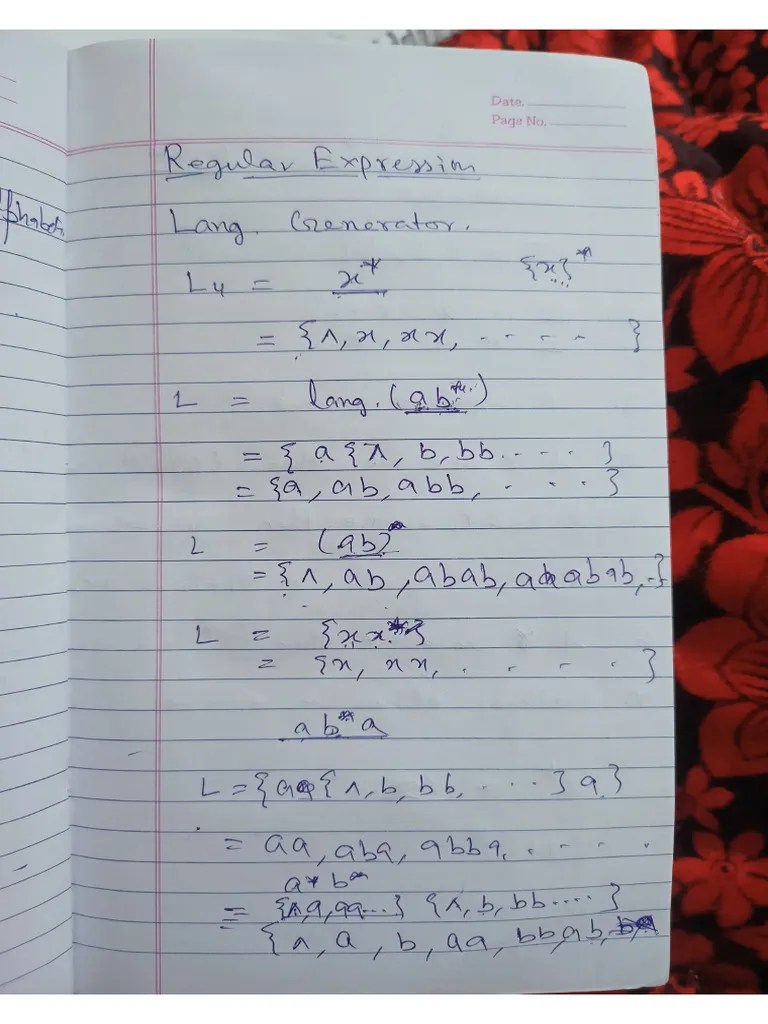 Date.
Page No.
Regular Expression
Lang. Generator.
L4 = x* {x}*
= {Λ, x, xx, ----- }
L = lang. (ab*)
= { a {Λ, b, bb..... }
= {a, ab, abb, .... }
L = (ab)*
= {Λ, ab, abab, ababab, ..}
L = {xx*}
= {x, xx, ..... }
ab*a
L = {a {Λ, b, bb, .... } a }
= aa, aba, abba, .....
a* b*
= {Λ, a, aa...} {Λ, b, bb....}
{Λ, a, b, aa, bb, ab,